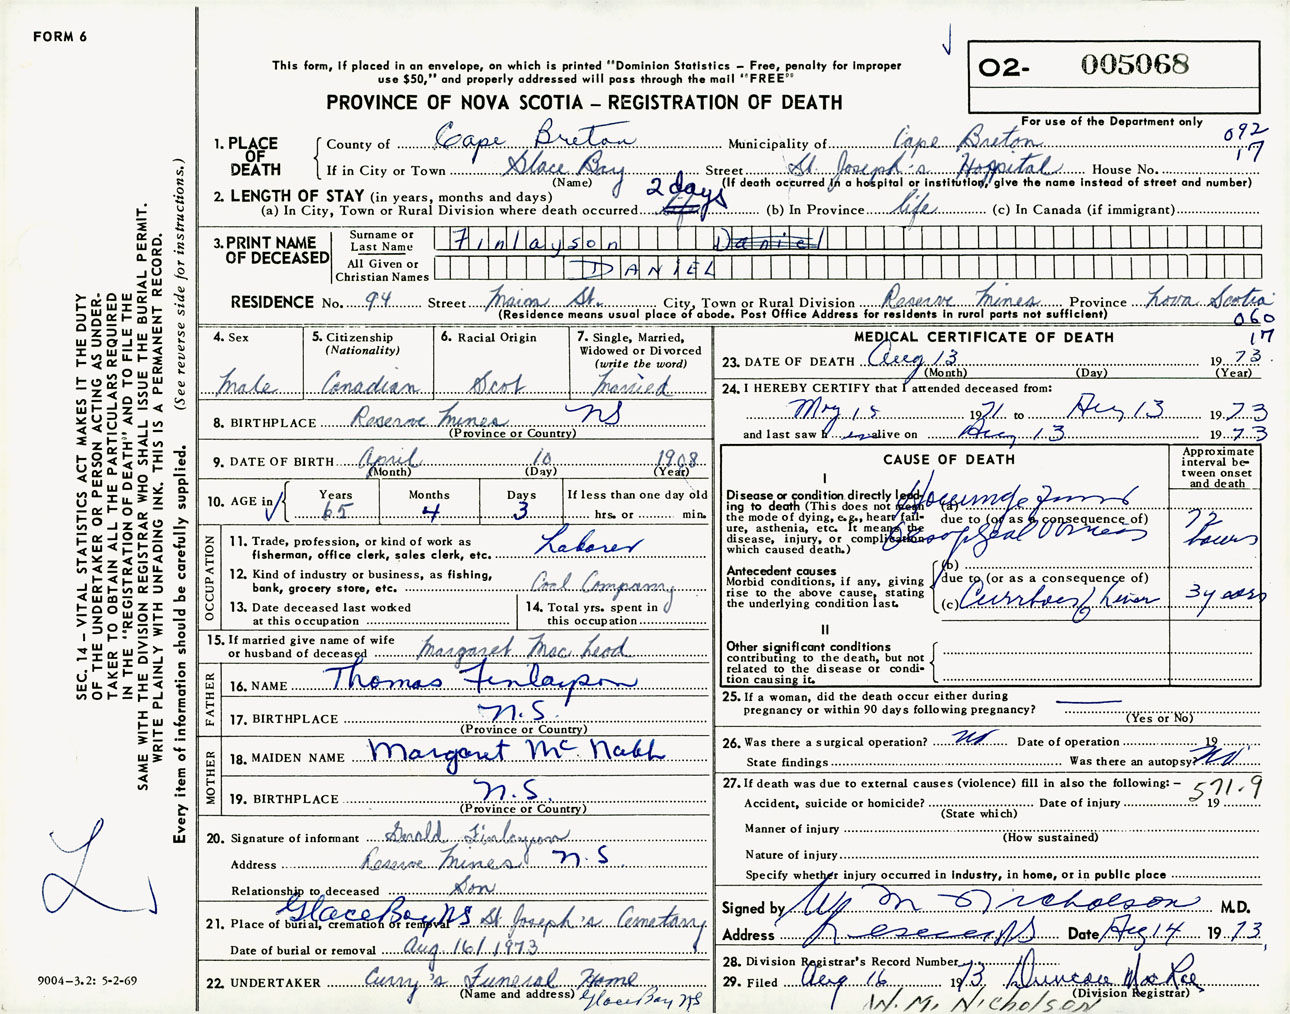 FORM 6
This form, if placed in an envelope, on which is printed "Dominion Statistics – Free, penalty for improper
use $50," and properly addressed will pass through the mail "FREE"
O2- 005068
For use of the Department only
PROVINCE OF NOVA SCOTIA – REGISTRATION OF DEATH
092
17
1. PLACE OF DEATH County of Cape Breton Municipality of Cape Breton
If in City or Town Glace Bay Street St. Joseph's Hospital House No.
(Name) (If death occurred in a hospital or institution, give the name instead of street and number)
2. LENGTH OF STAY (in years, months and days) 2 days
(a) In City, Town or Rural Division where death occurred (b) In Province life (c) In Canada (if immigrant)
3. PRINT NAME OF DECEASED
Surname or Last Name Finlayson Daniel
All Given or Christian Names DANIEL
RESIDENCE No. 94 Street Main St. City, Town or Rural Division Reserve Mines Province Nova Scotia
(Residence means usual place of abode. Post Office Address for residents in rural parts not sufficient)
060
17
4. Sex Male
5. Citizenship (Nationality) Canadian
6. Racial Origin Scot
7. Single, Married, Widowed or Divorced (write the word) Married
8. BIRTHPLACE Reserve Mines NS
(Province or Country)
9. DATE OF BIRTH April 10 1908
(Month) (Day) (Year)
10. AGE in Years 65 Months 4 Days 3 If less than one day old
hrs. or min.
OCCUPATION
11. Trade, profession, or kind of work as
fisherman, office clerk, sales clerk, etc. Laborer
12. Kind of industry or business, as fishing,
bank, grocery store, etc. Coal Company
13. Date deceased last worked
at this occupation
14. Total yrs. spent in
this occupation
15. If married give name of wife
or husband of deceased Margaret Mac Leod
FATHER
16. NAME Thomas Finlayson
17. BIRTHPLACE N.S.
(Province or Country)
MOTHER
18. MAIDEN NAME Margaret Mc Nabb
19. BIRTHPLACE N.S.
(Province or Country)
20. Signature of informant Gerald Finlayson
Address Reserve Mines N.S
Relationship to deceased Son
21. Place of burial, cremation or removal Glace Bay NS St. Joseph's Cemetary
Date of burial or removal Aug. 16/1973
22. UNDERTAKER Curry's Funeral Home
(Name and address) Glace Bay NS
MEDICAL CERTIFICATE OF DEATH
23. DATE OF DEATH Aug 13 1973
(Month) (Day) (Year)
24. I HEREBY CERTIFY that I attended deceased from:
May 15 1971 to Aug 13 1973
and last saw h im alive on Aug 13 1973
CAUSE OF DEATH
Approximate interval between onset and death
I
Disease or condition directly leading to death (This does not mean
the mode of dying, e.g., heart failure, asthenia, etc. It means the
disease, injury, or complication
which caused death.)
(a)
due to (or as a consequence of)
72 hours
Antecedent causes
Morbid conditions, if any, giving
rise to the above cause, stating
the underlying condition last.
(b)
due to (or as a consequence of)
(c) Liver 3 years
II
Other significant conditions
contributing to the death, but not
related to the disease or condition causing it.
25. If a woman, did the death occur either during
pregnancy or within 90 days following pregnancy?
(Yes or No)
26. Was there a surgical operation? no Date of operation 19
State findings Was there an autopsy? no
27. If death was due to external causes (violence) fill in also the following: –
571.9
Accident, suicide or homicide? Date of injury 19
(State which)
Manner of injury
(How sustained)
Nature of injury
Specify whether injury occurred in industry, in home, or in public place
Signed by W M Nicholson M.D.
Address Reserve NS Date Aug 14 1973
28. Division Registrar's Record Number
29. Filed Aug 16 1973 Duncan MacRae
(Division Registrar)
W. M. NICHOLSON
SEC. 14 – VITAL STATISTICS ACT MAKES IT THE DUTY
OF THE UNDERTAKER OR PERSON ACTING AS UNDERTAKER TO OBTAIN ALL THE PARTICULARS REQUIRED
IN THE "REGISTRATION OF DEATH" AND TO FILE THE
SAME WITH THE DIVISION REGISTRAR WHO SHALL ISSUE THE BURIAL PERMIT.
WRITE PLAINLY WITH UNFADING INK. THIS IS A PERMANENT RECORD.
Every item of information should be carefully supplied. (See reverse side for instructions.)
9004–3.2: 5-2-69